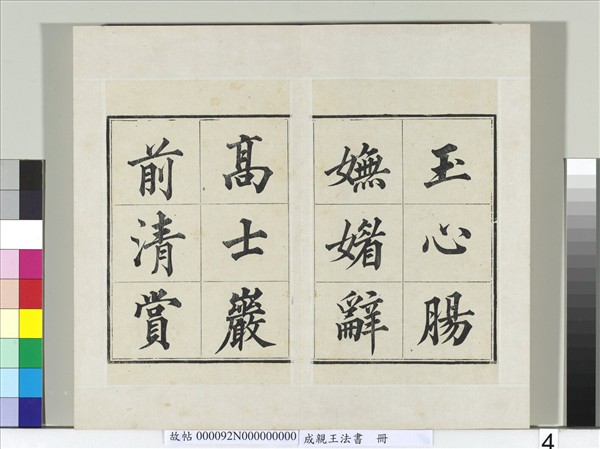 玉心腸
嫵媚辭
高士巖
前清賞
故帖 000092N000000000 成親王法書 冊
4